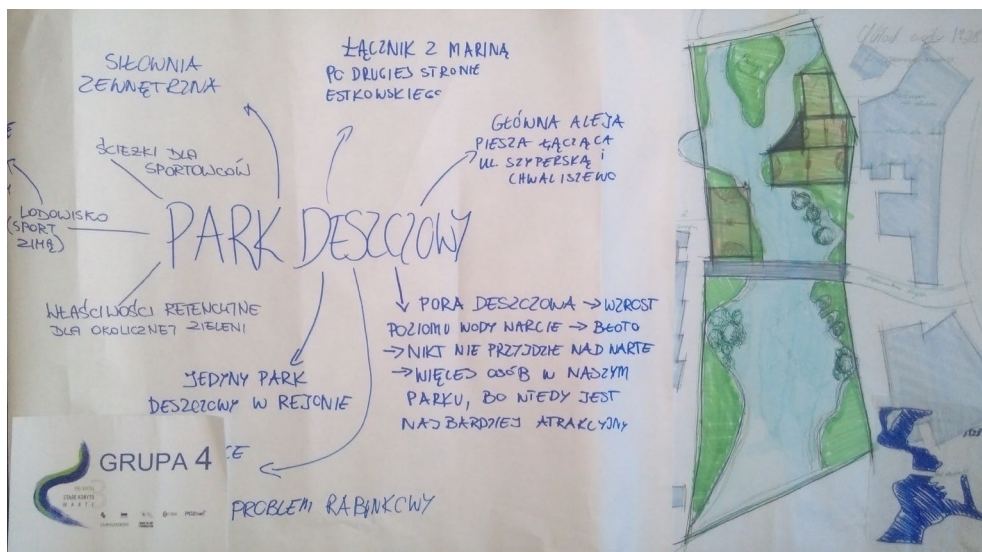 SIŁOWNIA
ZEWNĘTRZNA
ŁĄCZNIK Z MARINĄ
PO DRUGIEJ STRONIE
ESTKOWSKIEGO
GŁÓWNA ALEJA
PIESZA ŁĄCZĄCA
UL SZYPERSKĄ i
CHWALISZEWO
ŚCIEŻKI DLA
SPORTOWCÓW
LODOWISKO
(SPORT
ZIMĄ)
PARK DESZCZOWY
WŁAŚCIWOŚCI RETENCYJNE
DLA OKOLICZNEJ ZIELENI
JEDYNY PARK
DESZCZOWY W REJONIE
PORA DESZCZOWA → WZROST
POZIOMU WODY WARCIE → BŁOTO
→ NIKT NIE PRZYJDZIE NAD WARTE
→ WIĘCEJ OSÓB W NASZYM
PARKU, BO WTEDY JEST
NAJBARDZIEJ ATRAKCYJNY
CE
PROBLEM RABUNKOWY
GRUPA 4
STARE KORYTO
WARTY
3
POZnań*
1828